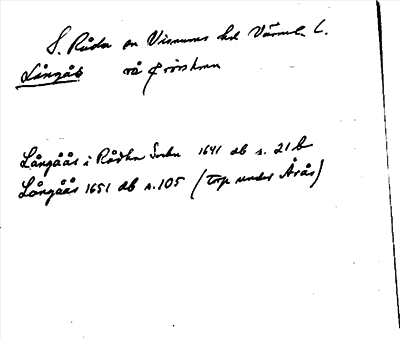 S. Råda sn Visnums hd Värml. l.
Långås
Långåås i Rådha Sochn 1641 Jb s. 21 b
Långåås 1651 Jb s. 105 (torp under Årås)